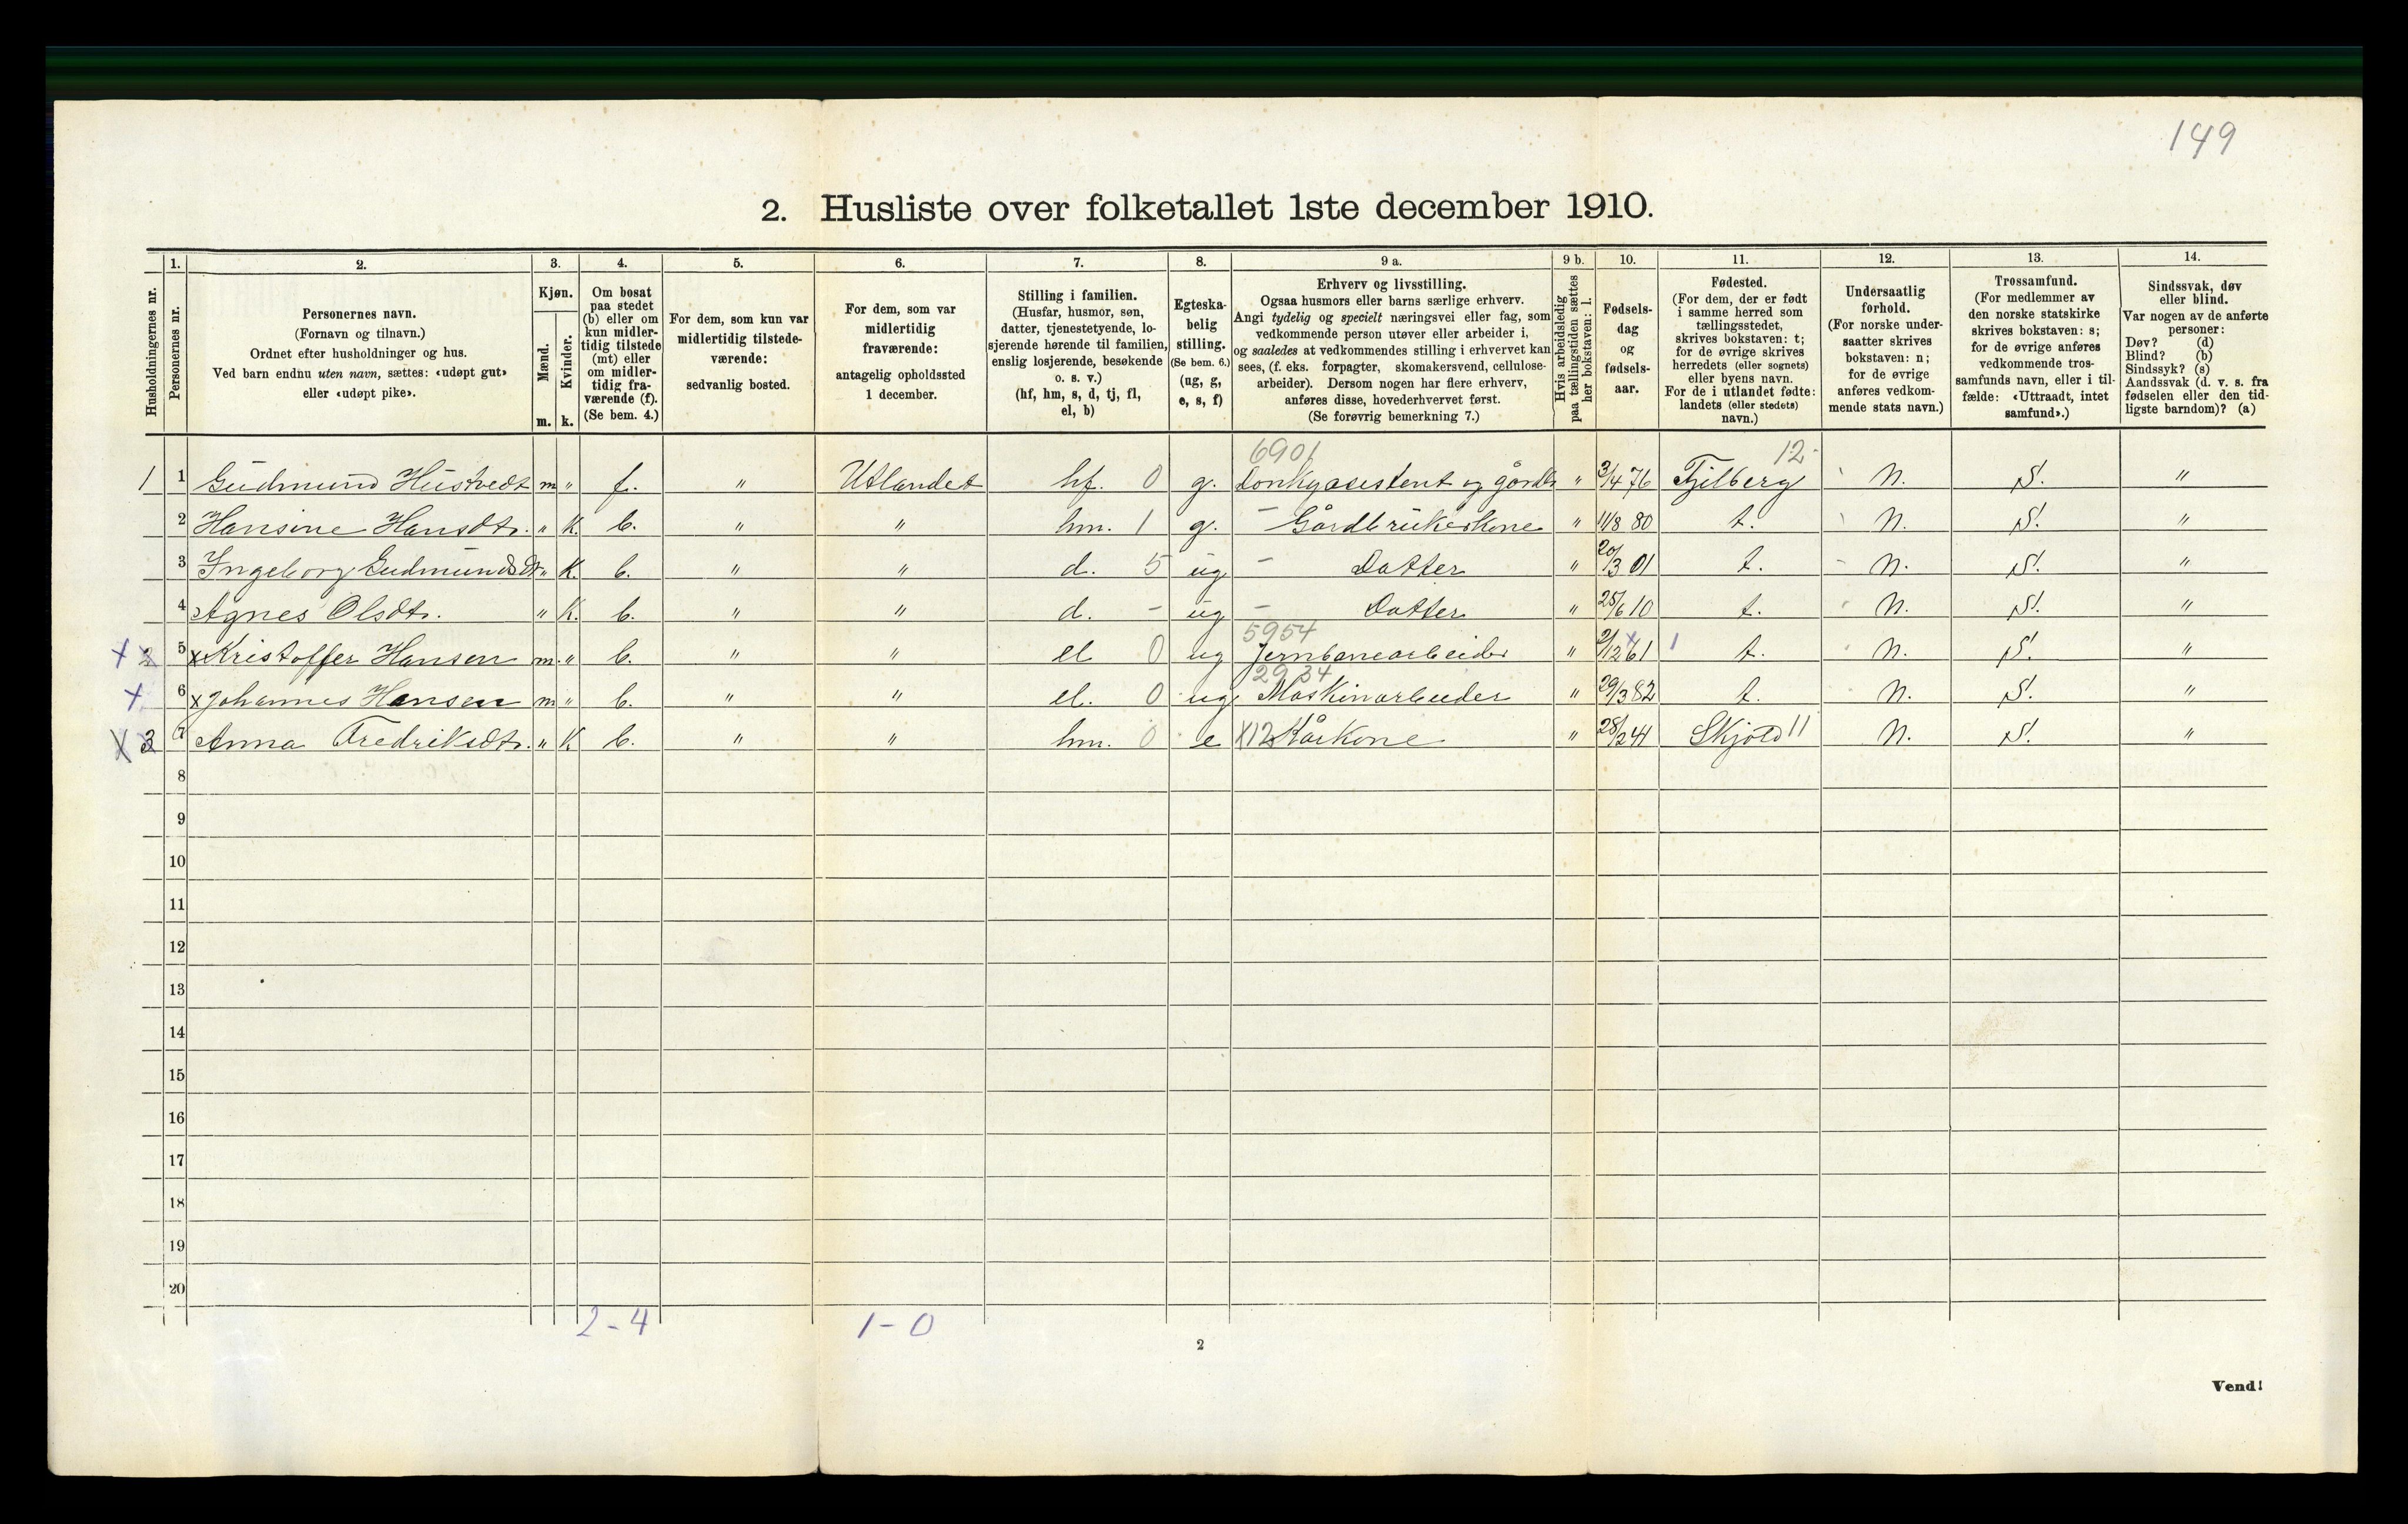 149
2. Husliste over folketallet 1ste december 1910.
Husholdningernes nr.
1. Personernes nr.
2. Personernes navn.
(Fornavn og tilnavn.)
Ordnet efter husholdninger og hus.
Ved barn endnu uten navn, sættes: «udøpt gut»
eller «udøpt pike».
3. Kjøn.
Mænd. m.
Kvinder. k.
4. Om bosat
paa stedet
(b) eller om
kun midler-
tidig tilstede
(mt) eller
om midler-
tidig fra-
værende (f).
(Se bem. 4.)
5. For dem, som kun var
midlertidig tilstede-
værende:
sedvanlig bosted.
6. For dem, som var
midlertidig
fraværende:
antagelig opholdssted
1 december.
7. Stilling i familien.
(Husfar, husmor, søn,
datter, tjenestetyende, lo-
sjerende hørende til familien,
enslig losjerende, besøkende
o. s. v.)
(hf, hm, s, d, tj, fl,
el, b)
8. Egteska-
belig
stilling.
(Se bem. 6.)
(ug, g,
e, s, f)
9 a. Erhverv og livsstilling.
Ogsaa husmors eller barns særlige erhverv.
Angi tydelig og specielt næringsvei eller fag, som
vedkommende person utøver eller arbeider i,
og saaledes at vedkommendes stilling i erhvervet kan
sees, (f. eks. forpagter, skomakersvend, cellulose-
arbeider). Dersom nogen har flere erhverv,
anføres disse, hovederhvervet først.
(Se forøvrig bemerkning 7.)
9 b. Hvis arbeidsledig
paa tællingstiden sættes
her bokstaven: l.
10. Fødsels-
dag
og
fødsels-
aar.
11. Fødested.
(For dem, der er født
i samme herred som
tællingsstedet,
skrives bokstaven: t;
for de øvrige skrives
herredets (eller sognets)
eller byens navn.
For de i utlandet fødte:
landets (eller stedets)
navn.)
12. Undersaatlig
forhold.
(For norske under-
saatter skrives
bokstaven: n;
for de øvrige
anføres vedkom-
mende stats navn.)
13. Trossamfund.
(For medlemmer av
den norske statskirke
skrives bokstaven: s;
for de øvrige anføres
vedkommende tros-
samfunds navn, eller i til-
fælde: «Uttraadt, intet
samfund».)
14. Sindssvak, døv
eller blind.
Var nogen av de anførte
personer:
Døv? (d)
Blind? (b)
Sindssyk? (s)
Aandssvak (d. v. s. fra
fødselen eller den tid-
ligste barndom)? (a)
6901 12
1 1 Gudmund Hustvedt m " f. " Utlandet hf. 0 g. " 3/4 76 Fjelberg N. S. "
2 Hansine Hansdtr. " K. b. " " hm. 1 g. - Gårdbrukerkone " 11/8 80 t. N. S. "
3 Ingeborg Gudmundsdtr " K. b. " " d. 5 ug - Datter " 20/3 01 t. N. S. "
4 Agnes Olsdtr. " K. b. " " d. - ug - Datter " 25/6 10 t. N. S. "
5954
x 2 5 x Kristoffer Hansen m. " b. " " el 0 ug Jernbanearbeider " t. N. S. "
2934
x 6 x Johannes Hansen m " b. " " el. 0 ug Maskinarbeider " 29/3 82 t. N. S. "
x 3 7 Anna Fredriksdtr. " K b. " " hm. 0 e x12 Kårkone " 28/2 41 Skjold 11 N. S. "
8
9
10
11
12
13
14
15
16
17
18
19
20
2-4 1-0
2
Vend!